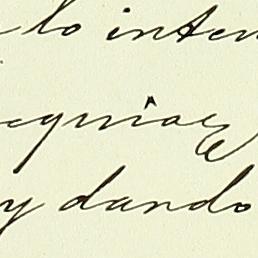 lo inten
equias
y dando